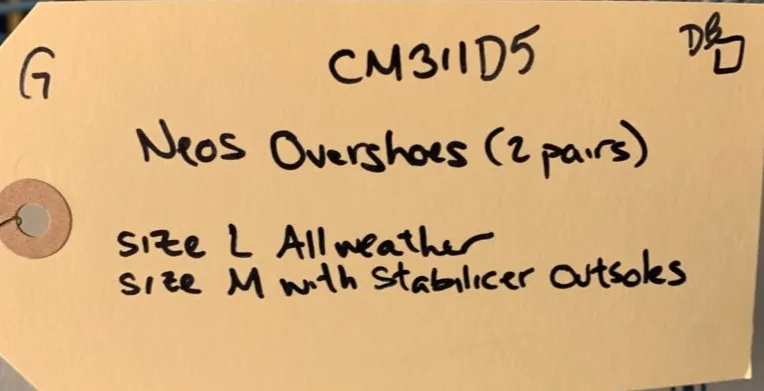 G
CM311D5
DB
Neos Overshoes (2 pairs)
size L Allweather
size M with Stabilicer Outsoles